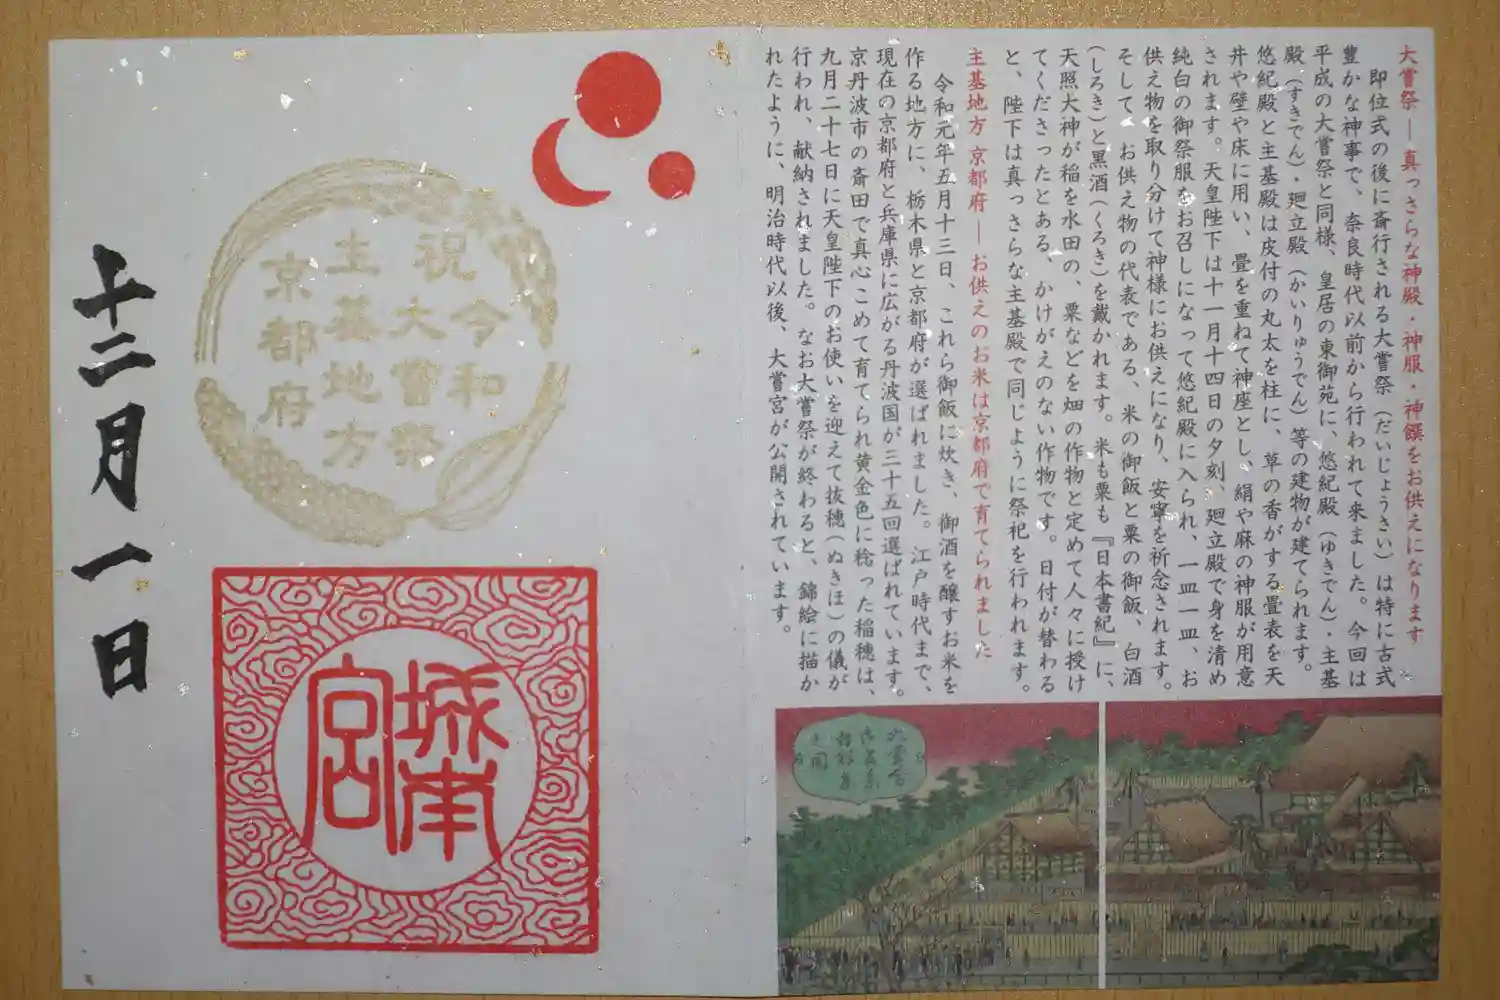 大嘗祭―真っさらな神殿・神服・神饌をお供えになります
即位式の後に斎行される大嘗祭（だいじょうさい）は特に古式
豊かな神事で、奈良時代以前から行われて来ました。今回は
平成の大嘗祭と同様、皇居の東御苑に、悠紀殿（ゆきでん）・主基
殿（すきでん）・廻立殿（かいりゅうでん）等の建物が建てられます。
悠紀殿と主基殿は皮付の丸太を柱に、草の香がする畳表を天
井や壁や床に用い、畳を重ねて神座とし、絹や麻の神服が用意
されます。天皇陛下は十一月十四日の夕刻、廻立殿で身を清め
純白の御祭服をお召しになって悠紀殿に入られ、一皿一皿、お
供え物を取り分けて神様にお供えになり、安寧を祈念されます。
そして、お供え物の代表である、米の御飯と粟の御飯、白酒
（しろき）と黒酒（くろき）を戴かれます。米も粟も『日本書紀』に、
天照大神が稲を水田の、粟などを畑の作物と定めて人々に授け
てくださったとある、かけがえのない作物です。日付が替わる
と、陛下は真っさらな主基殿で同じように祭祀を行われます。
主基地方 京都府―お供えのお米は京都府で育てられました
令和元年五月十三日、これら御飯に炊き、御酒を醸すお米を
作る地方に、栃木県と京都府が選ばれました。江戸時代まで、
現在の京都府と兵庫県に広がる丹波国が三十五回選ばれています。
京丹波市の斎田で真心こめて育てられ黄金色に稔った稲穂は、
九月二十七日に天皇陛下のお使いを迎えて抜穂（ぬきほ）の儀が
行われ、献納されました。なお大嘗祭が終わると、錦絵に描か
れたように、明治時代以後、大嘗宮が公開されています。
祝
令和
大嘗祭
主基地方
京都府
城南
宮
十二月一日